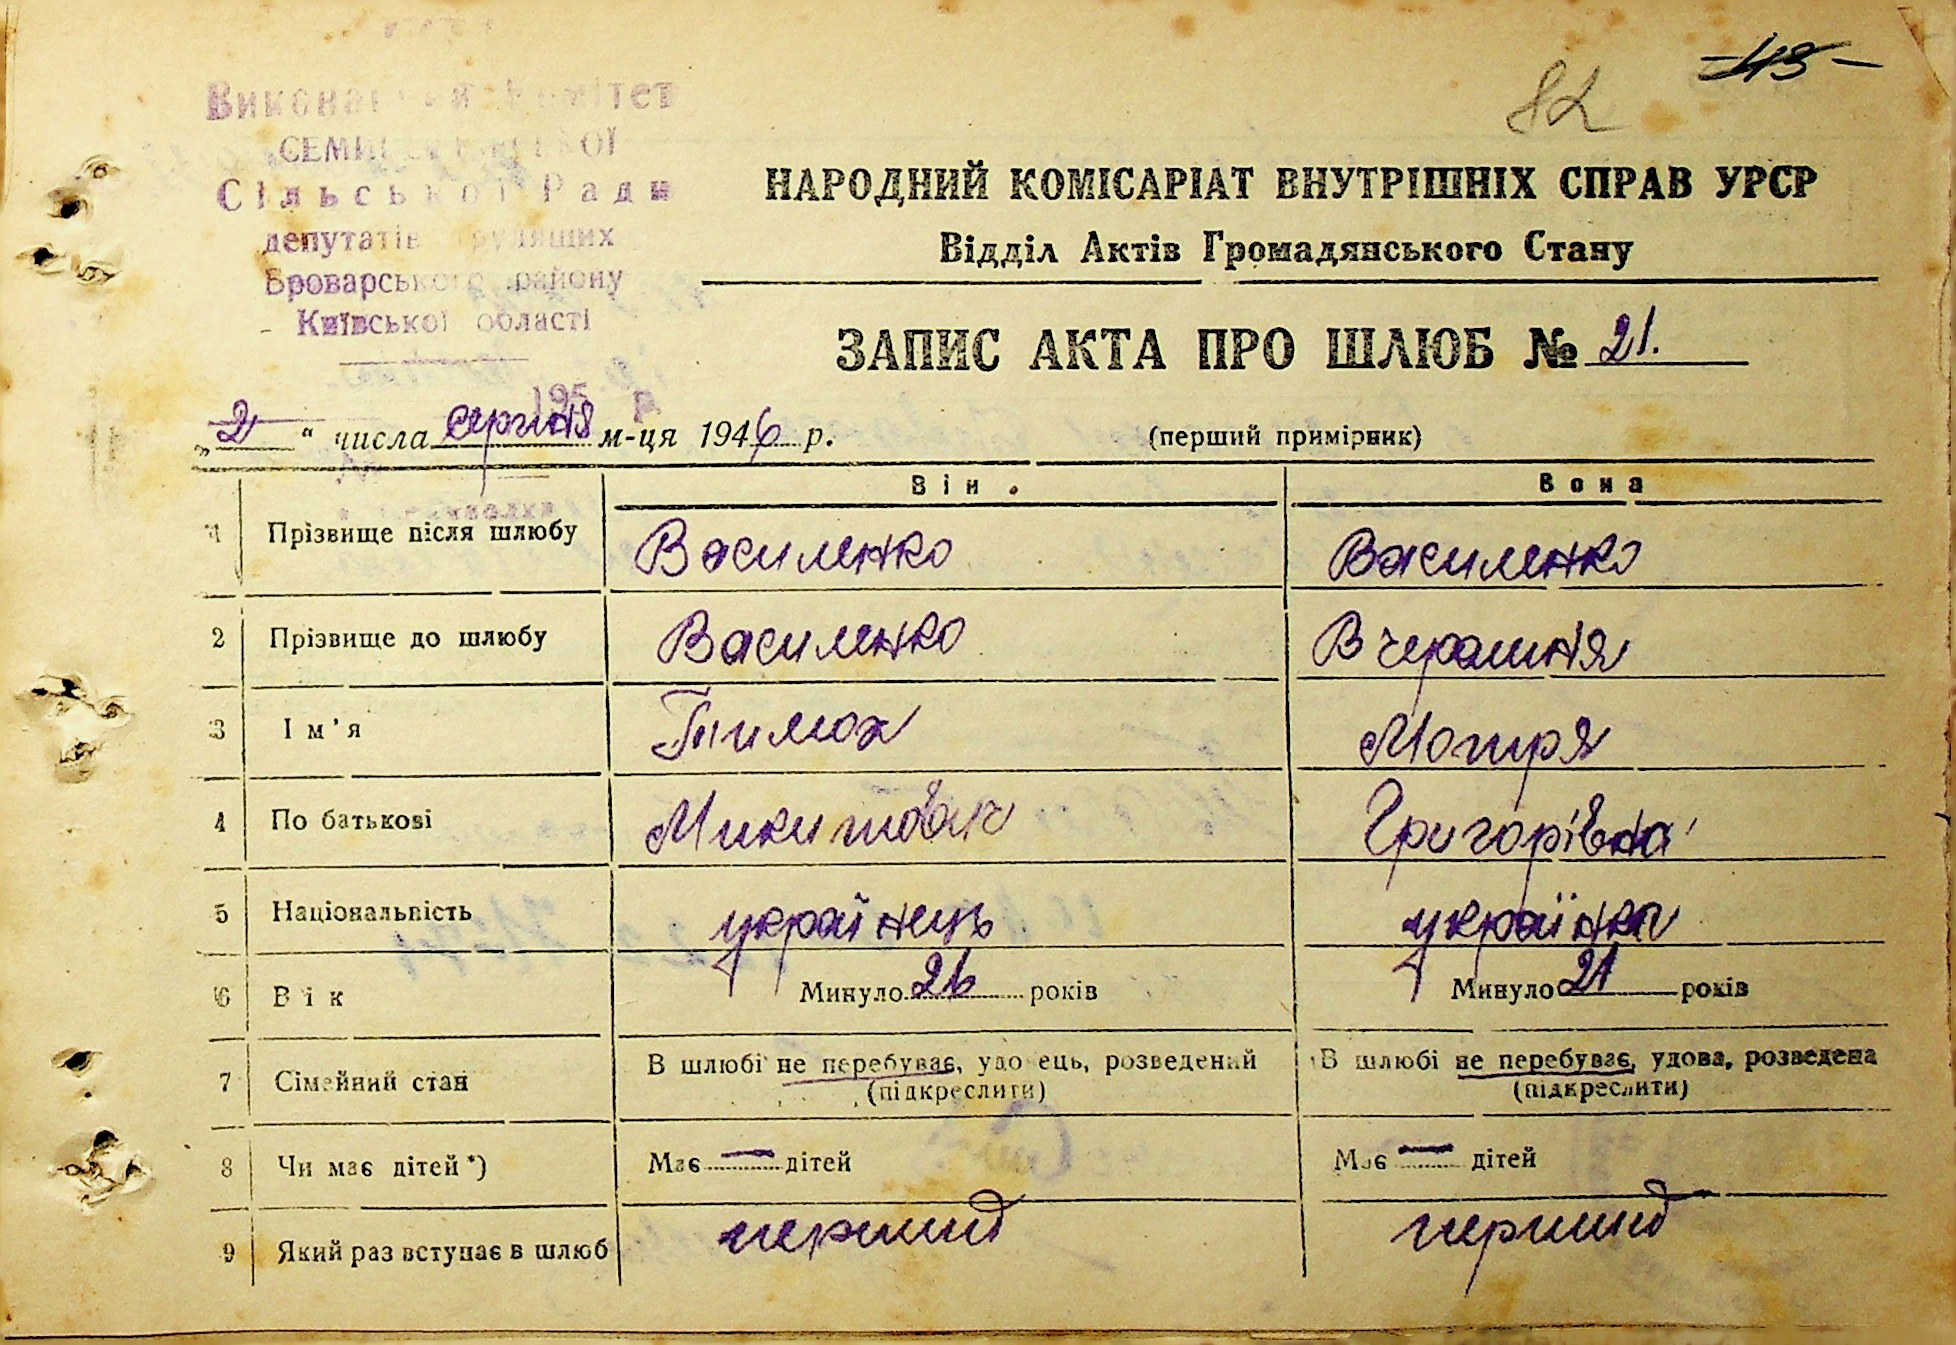 -43-
82
Виконавчий Комітет
Сільської Ради
депутатів трудящих
Броварського району
Київської області
195 р.
НАРОДНИЙ КОМІСАРІАТ ВНУТРІШНІХ СПРАВ УРСР
Відділ Актів Громадянського Стану
ЗАПИС АКТА ПРО ШЛЮБ № 21.
„2“ числа серпня м-ця 1946 р.
(перший примірник)
Він
Вона
1 Прізвище після шлюбу Василенко Василенко
2 Прізвище до шлюбу Василенко Вчерашня
3 Ім'я Тимох Мотря
4 По батькові Микитович Григорівна
5 Національність українець українка
6 Вік Минуло 26 років Минуло 21 років
7 Сімейний стан В шлюбі не перебуває, удовець, розведений В шлюбі не перебуває, удова, розведена
(підкреслити) (підкреслити)
8 Чи має дітей*) Має — дітей Має — дітей
9 Який раз вступає в шлюб перший перший